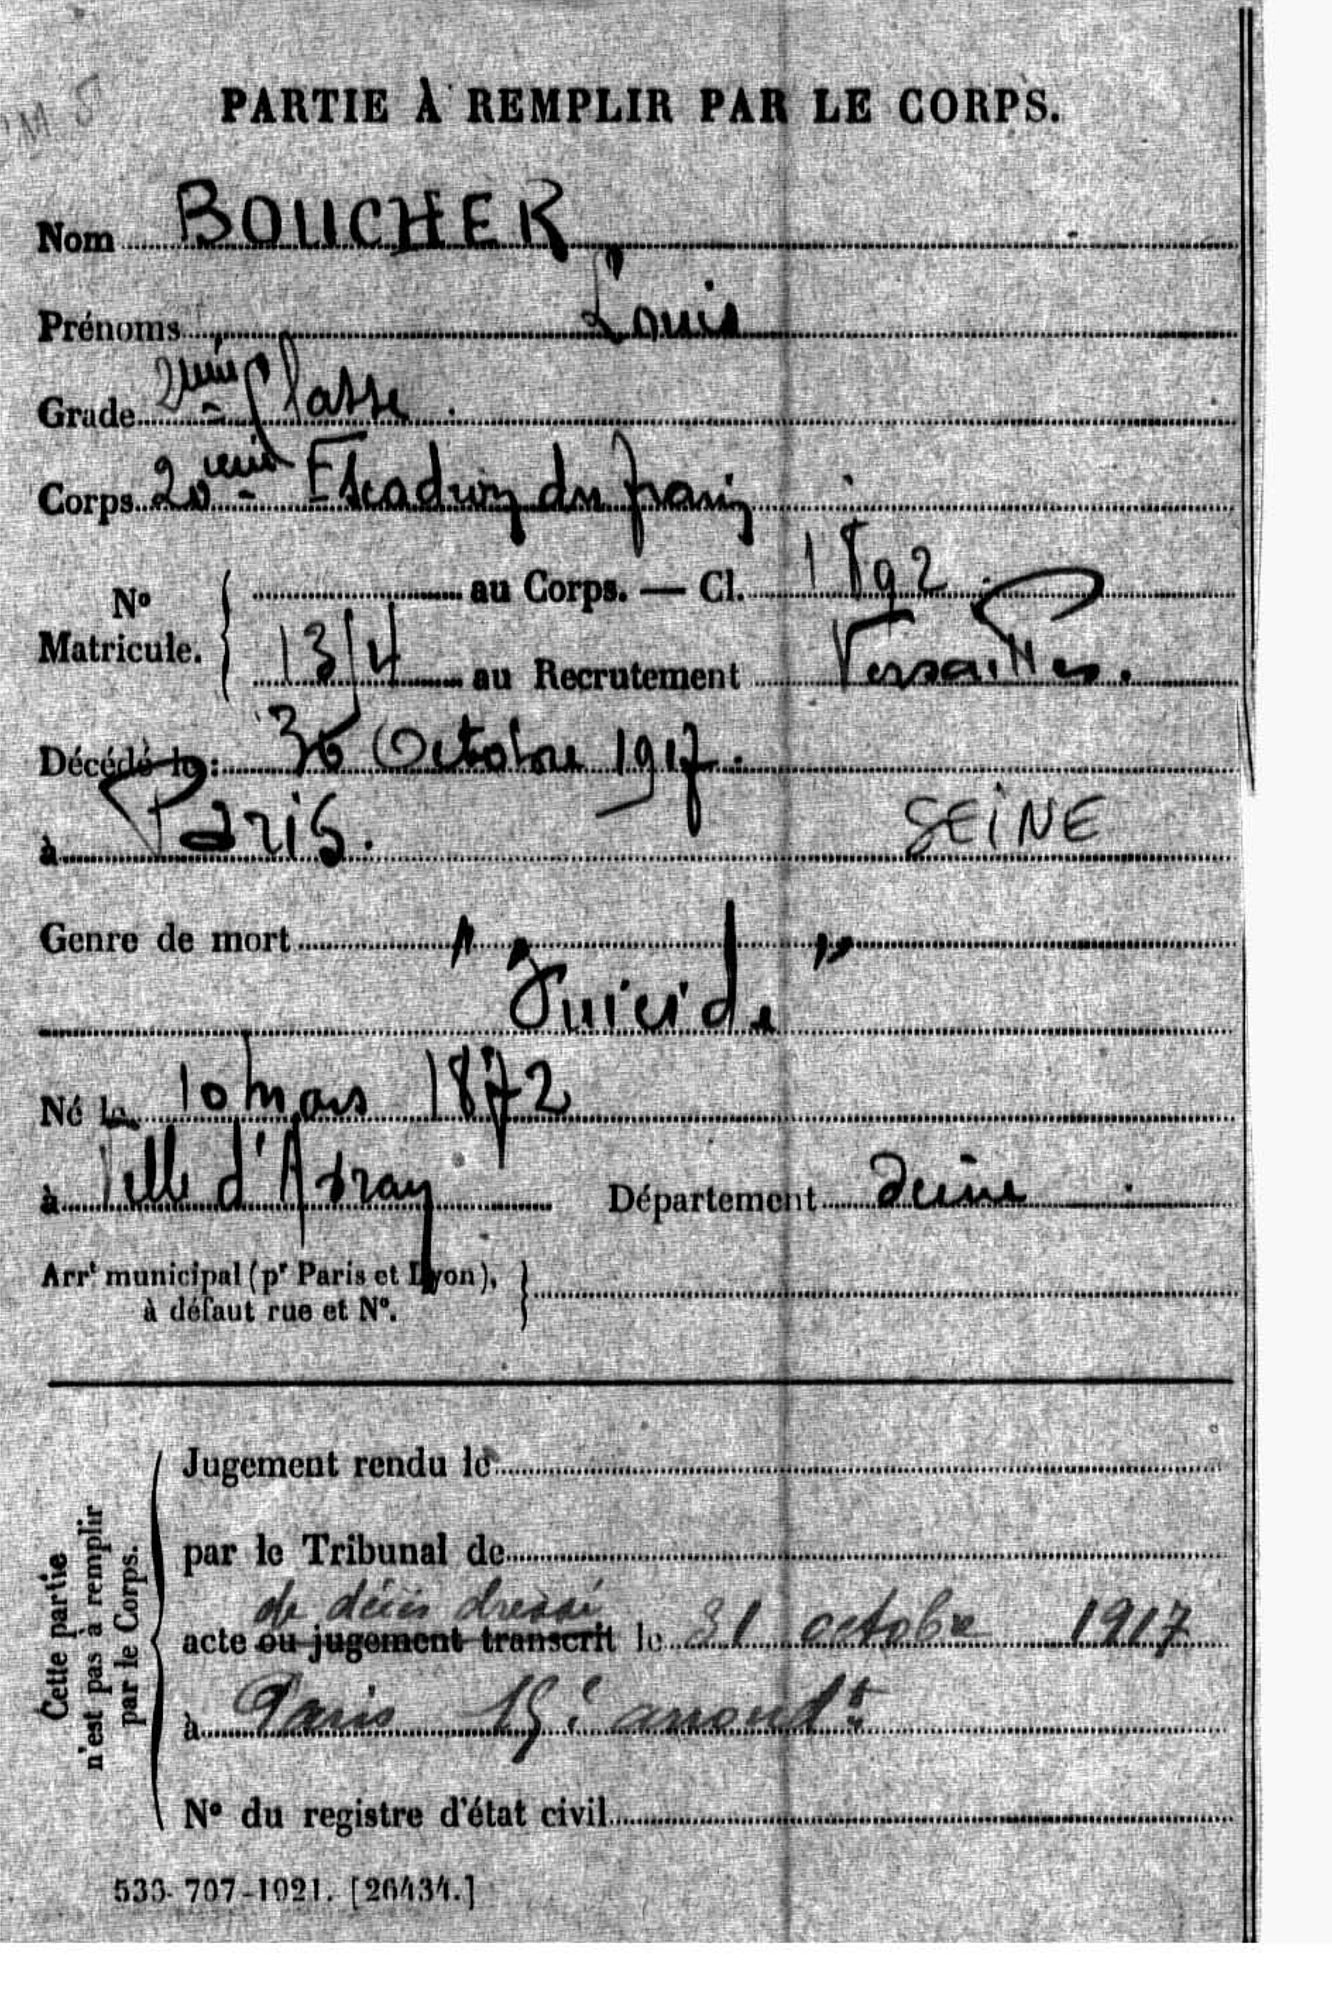 PARTIE À REMPLIR PAR LE CORPS.
Nom BOUCHER
Prénoms Louis
Grade 2ème Classe.
Corps 20ème Escadron du Train
Nº Matricule. { au Corps. — Cl. 1892
1314 au Recrutement Versailles.
Décédé le : 30 Octobre 1917.
à Paris. SEINE
Genre de mort "
Suicide "
Né le 10 Mars 1872
à Ville d'Avray Département Seine
Arrt municipal (pr Paris et Lyon), }
à défaut rue et Nº.
Cette partie
n'est pas à remplir
par le Corps.
Jugement rendu le
par le Tribunal de
de décès dressé
acte ou jugement transcrit le 31 octobre 1917
à Paris 15e arrondt
Nº du registre d'état civil
533-707-1921. [26434.]